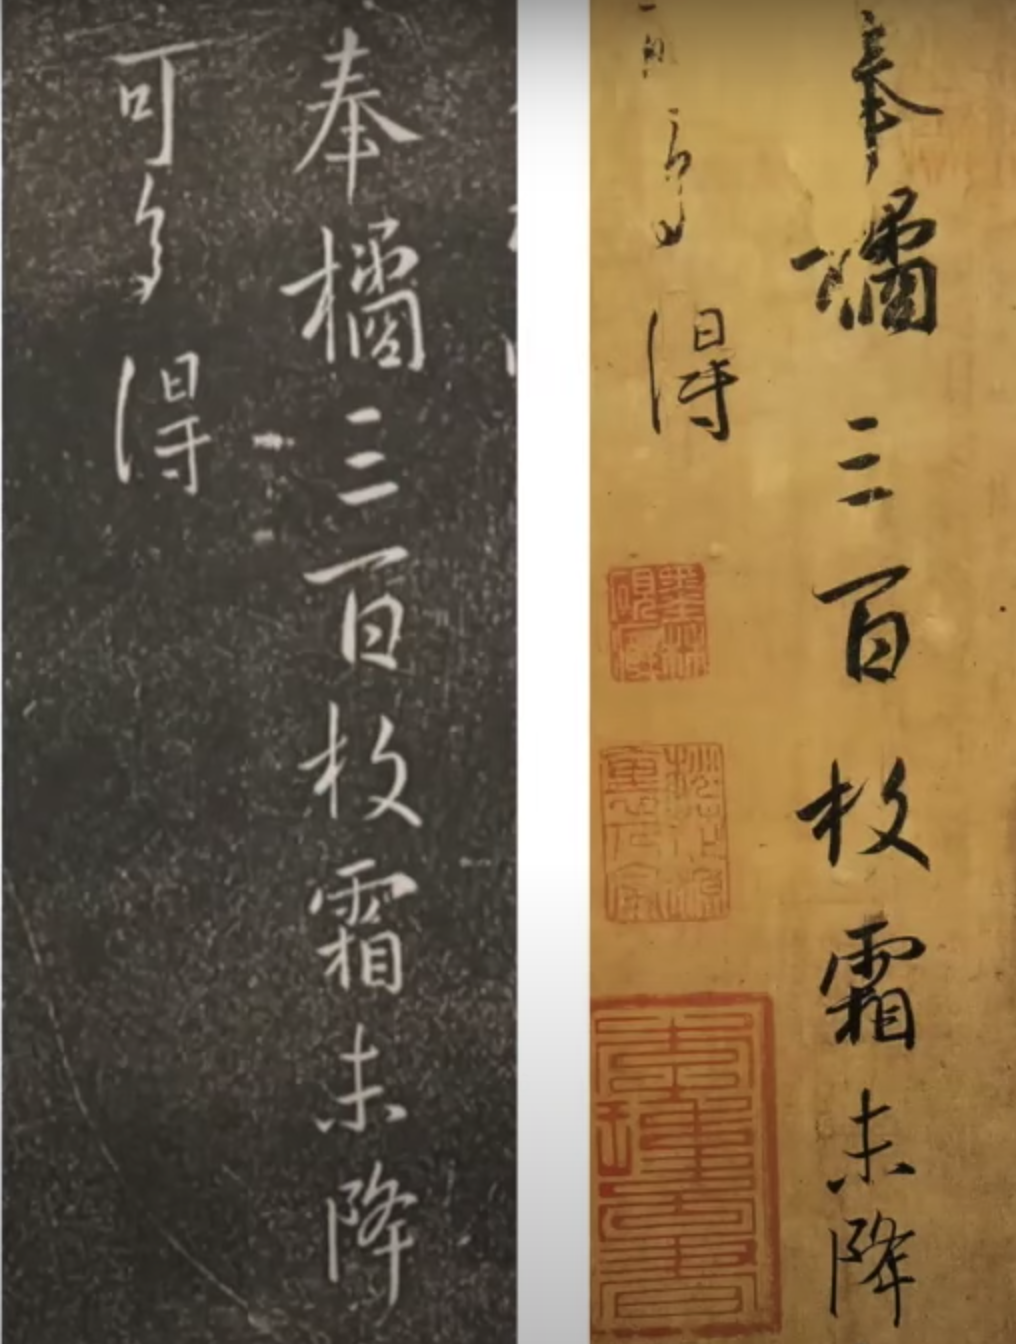 奉橘三百枚霜未降
可多得
奉橘三百枚霜未降
可多得